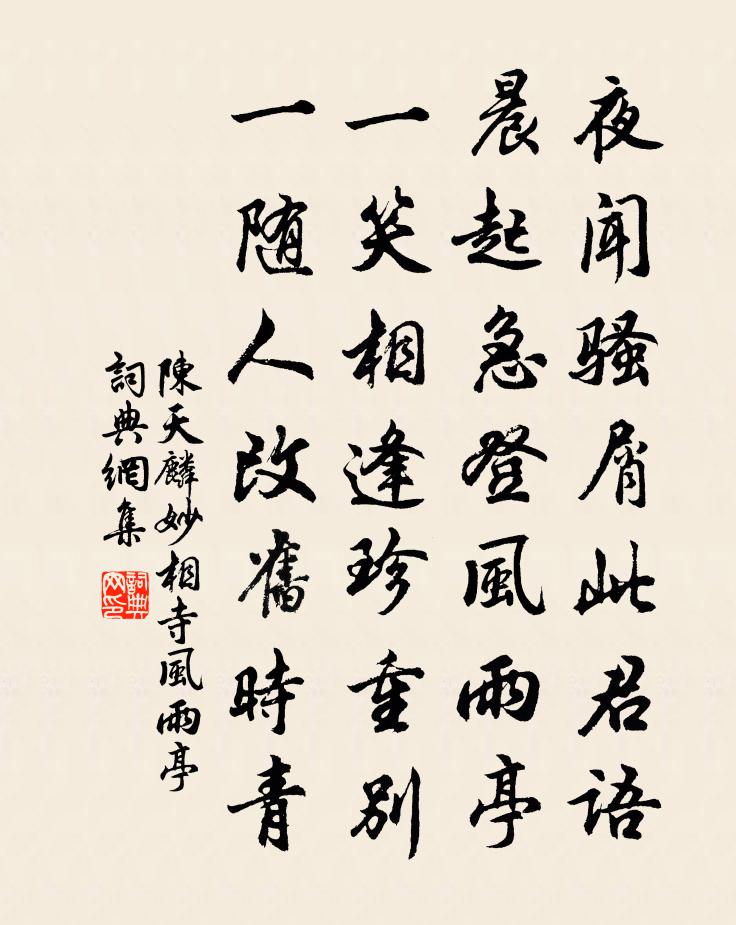 夜聞騷屑此君語
晨起急登風雨亭
一笑相逢珍重別
一随人改舊時青
陳天麟妙相寺風雨亭
詞典網集
詞典网印